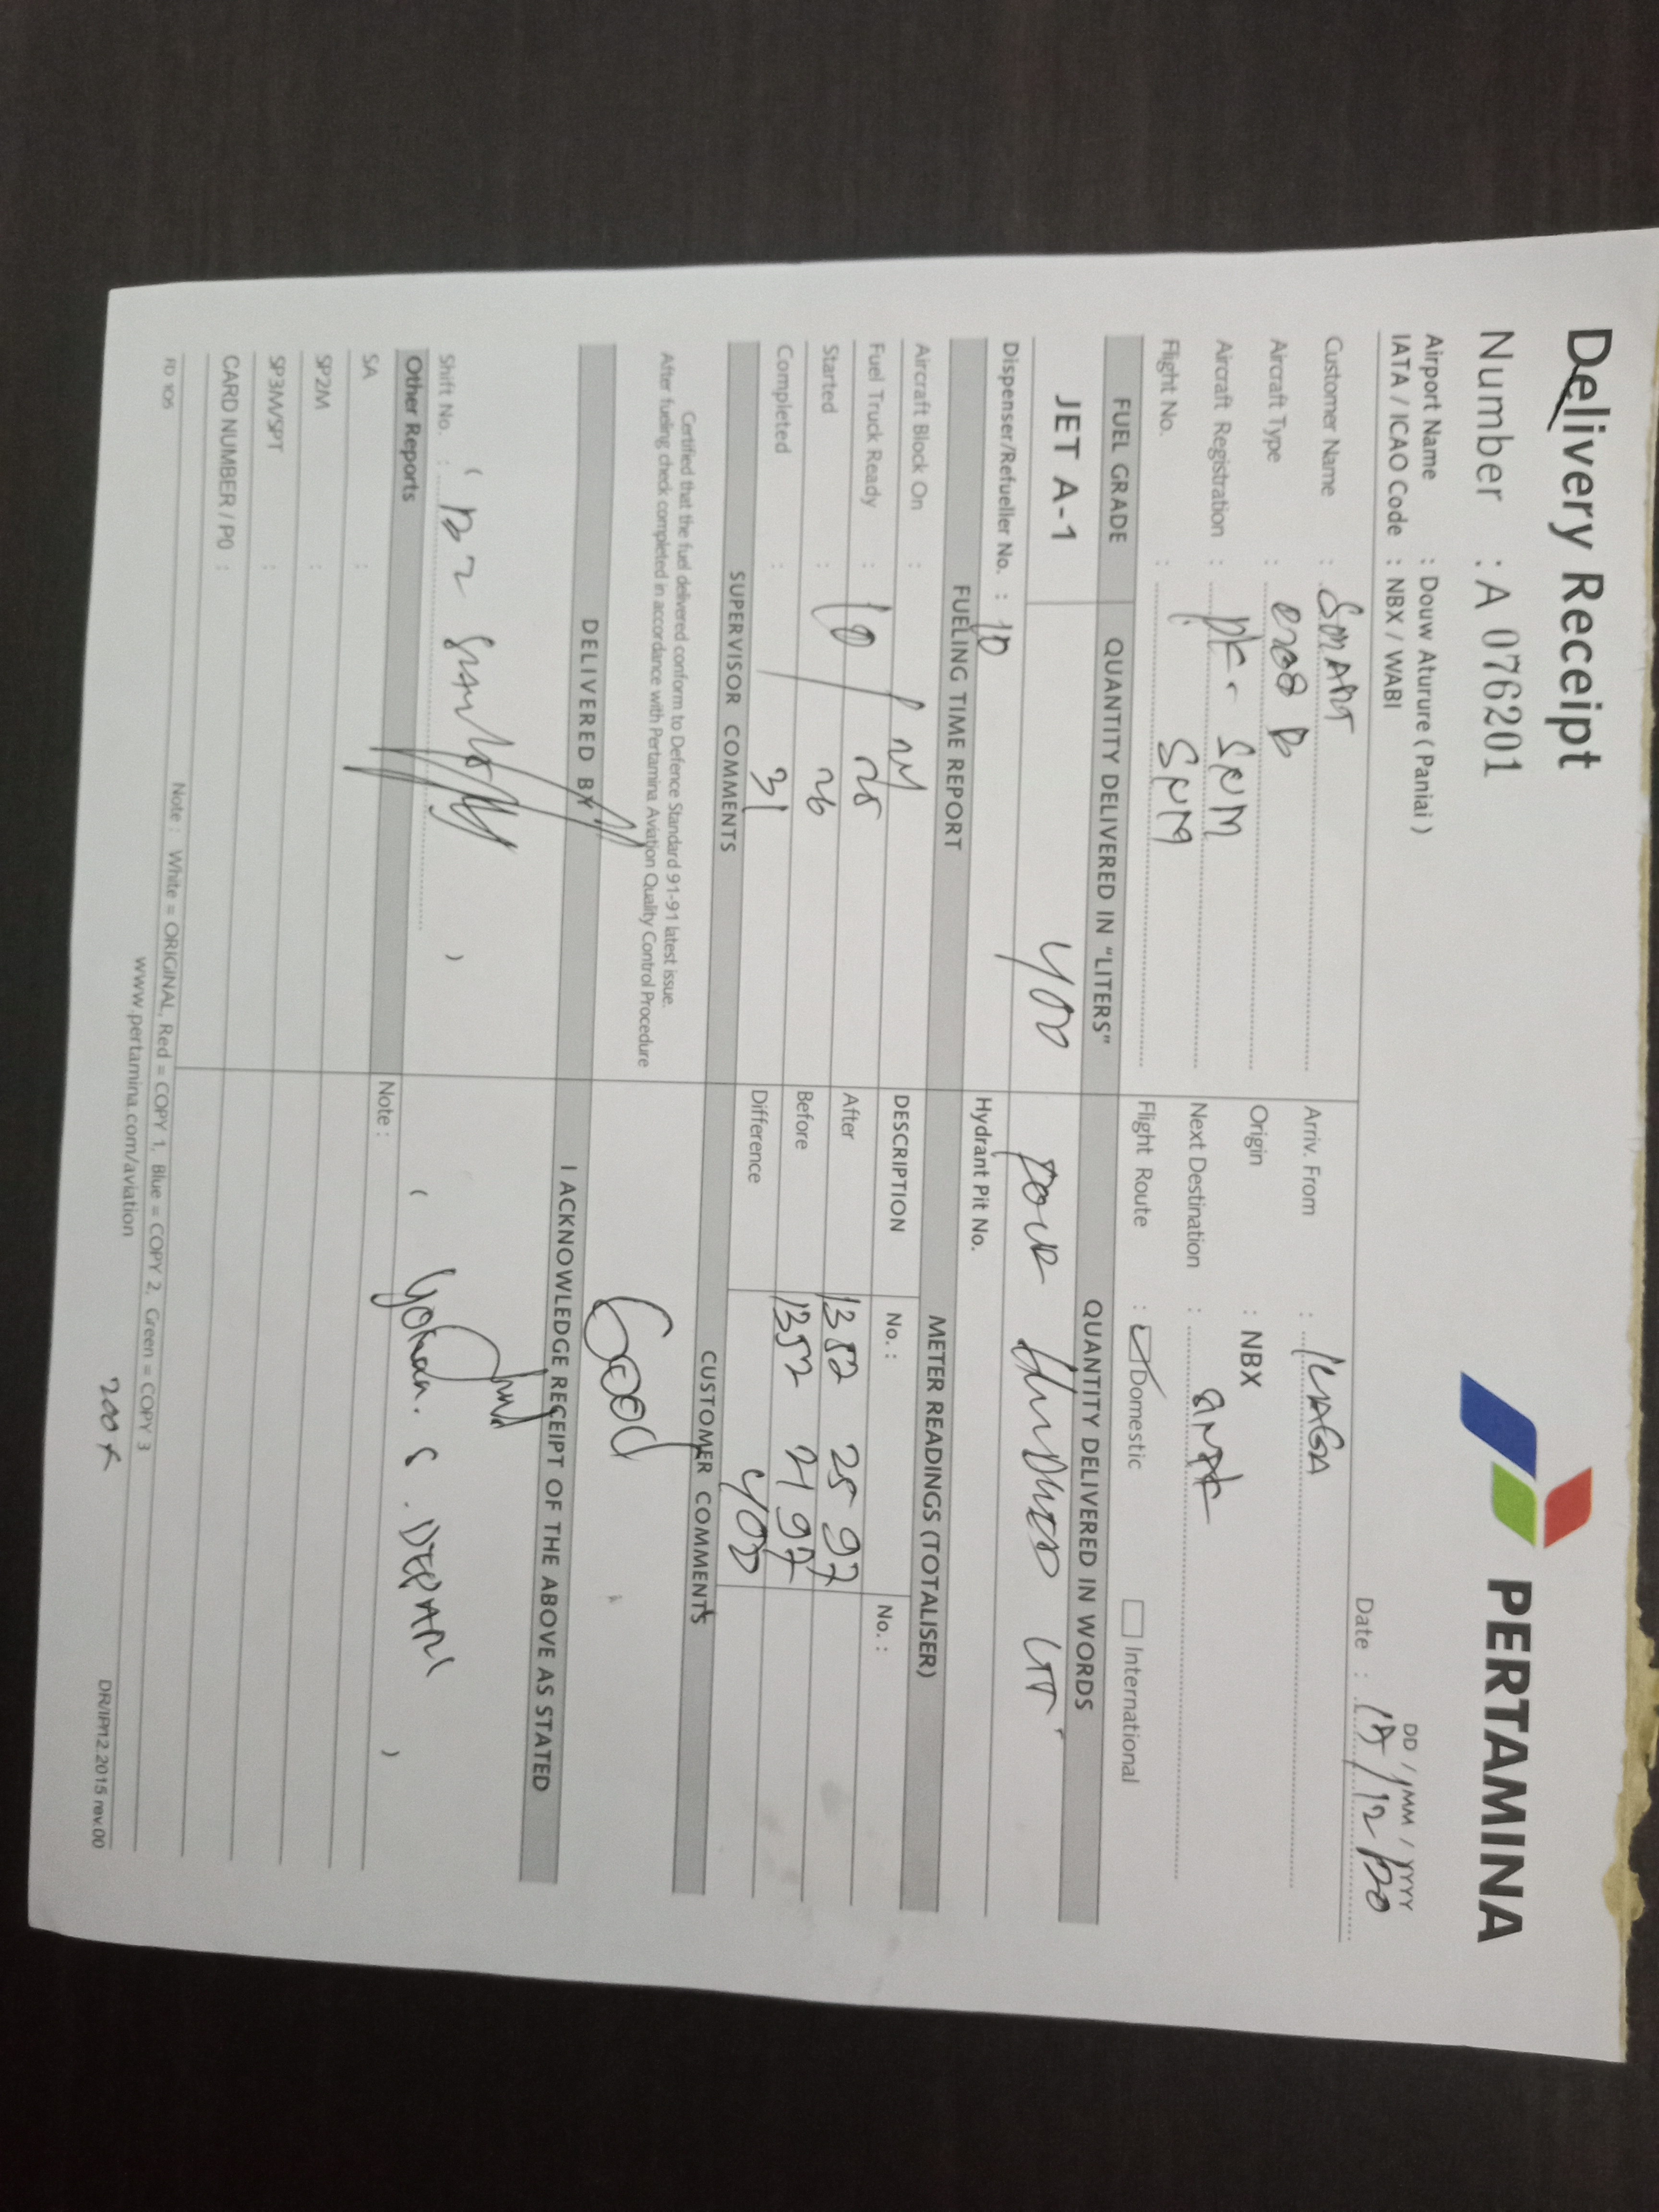 Delivery Receipt
PERTAMINA
Number : A 076201
Airport Name : Douw Aturure ( Paniai )
IATA / ICAO Code : NBX / WABI
DD / MM / YYYY
Date : /12/
Customer Name : SMART
Arriv. From :
Aircraft Type : C208 B
Origin : NBX
Aircraft Registration : PK - SNM
Next Destination :
Flight No. : SNM
Flight Route : Domestic International
FUEL GRADE QUANTITY DELIVERED IN "LITERS" QUANTITY DELIVERED IN WORDS
JET A-1 400 FOUR HUNDRED LTR
Dispenser/Refueller No. : 10 Hydrant Pit No.
FUELING TIME REPORT METER READINGS (TOTALISER)
Aircraft Block On : DESCRIPTION No. : No. :
Fuel Truck Ready : 10 25 After 1352 25 97
Started : 26 Before 1352 21 97
Completed : 31 Difference 400
SUPERVISOR COMMENTS CUSTOMER COMMENTS
Certified that the fuel delivered conform to Defence Standard 91-91 latest issue.
After fueling check completed in accordance with Pertamina Aviation Quality Control Procedure
Good
DELIVERED BY I ACKNOWLEDGE RECEIPT OF THE ABOVE AS STATED
Shift No. : ( ) ( Yohan. S. )
Other Reports Note :
SA :
SP2M :
SP3M/SPT :
CARD NUMBER / PO :
FD 106
Note : White = ORIGINAL, Red = COPY 1, Blue = COPY 2, Green = COPY 3
www.pertamina.com/aviation
DR/IPn12.2015 rev.00